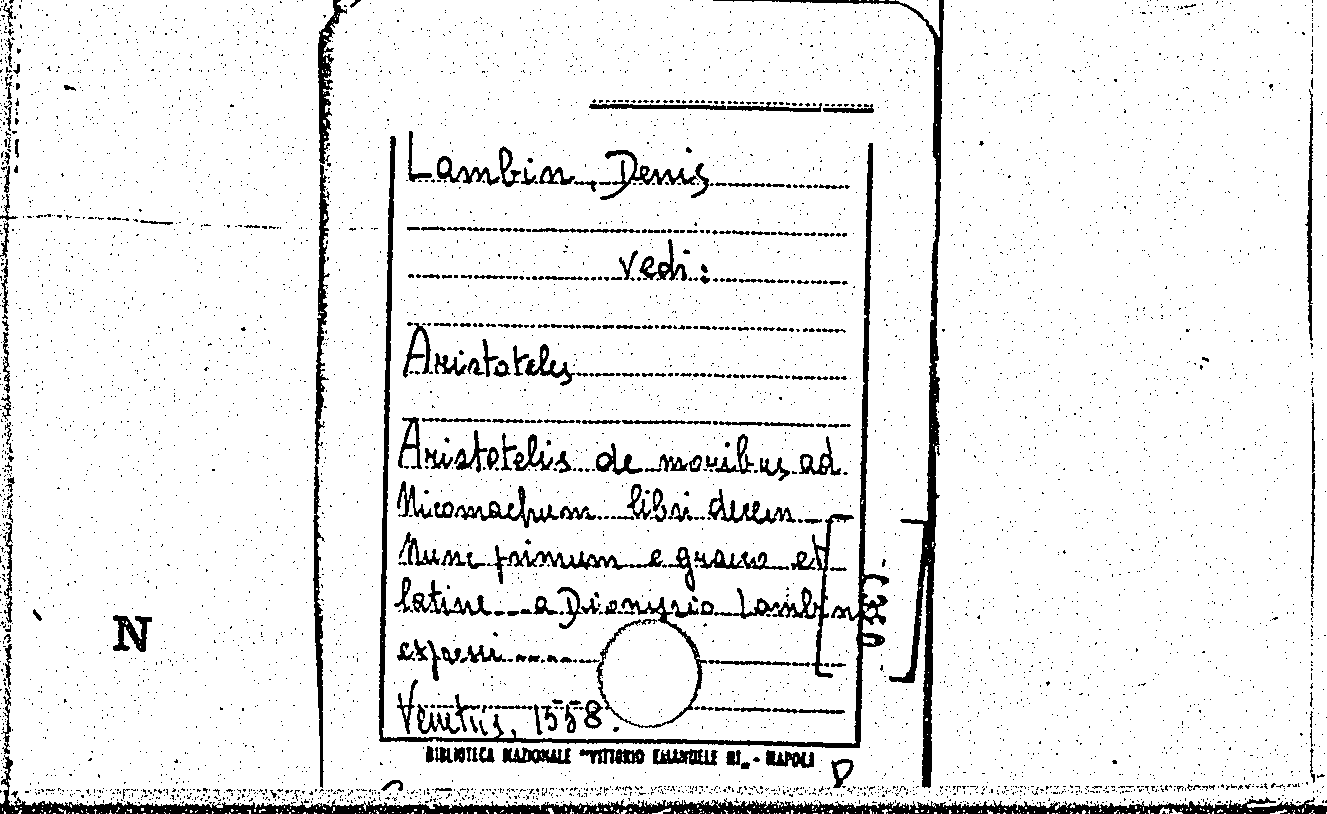 Lambin, Denis
vedi:
Aristoteles
Aristotelis de moribus ad
Nicomachum libri decem
Nunc primum e graeco et
latine... a Dionysio Lambino
expressi.....
Venetiis, 1558.
N
BIBLIOTECA NAZIONALE "VITTORIO EMANUELE III" - NAPOLI